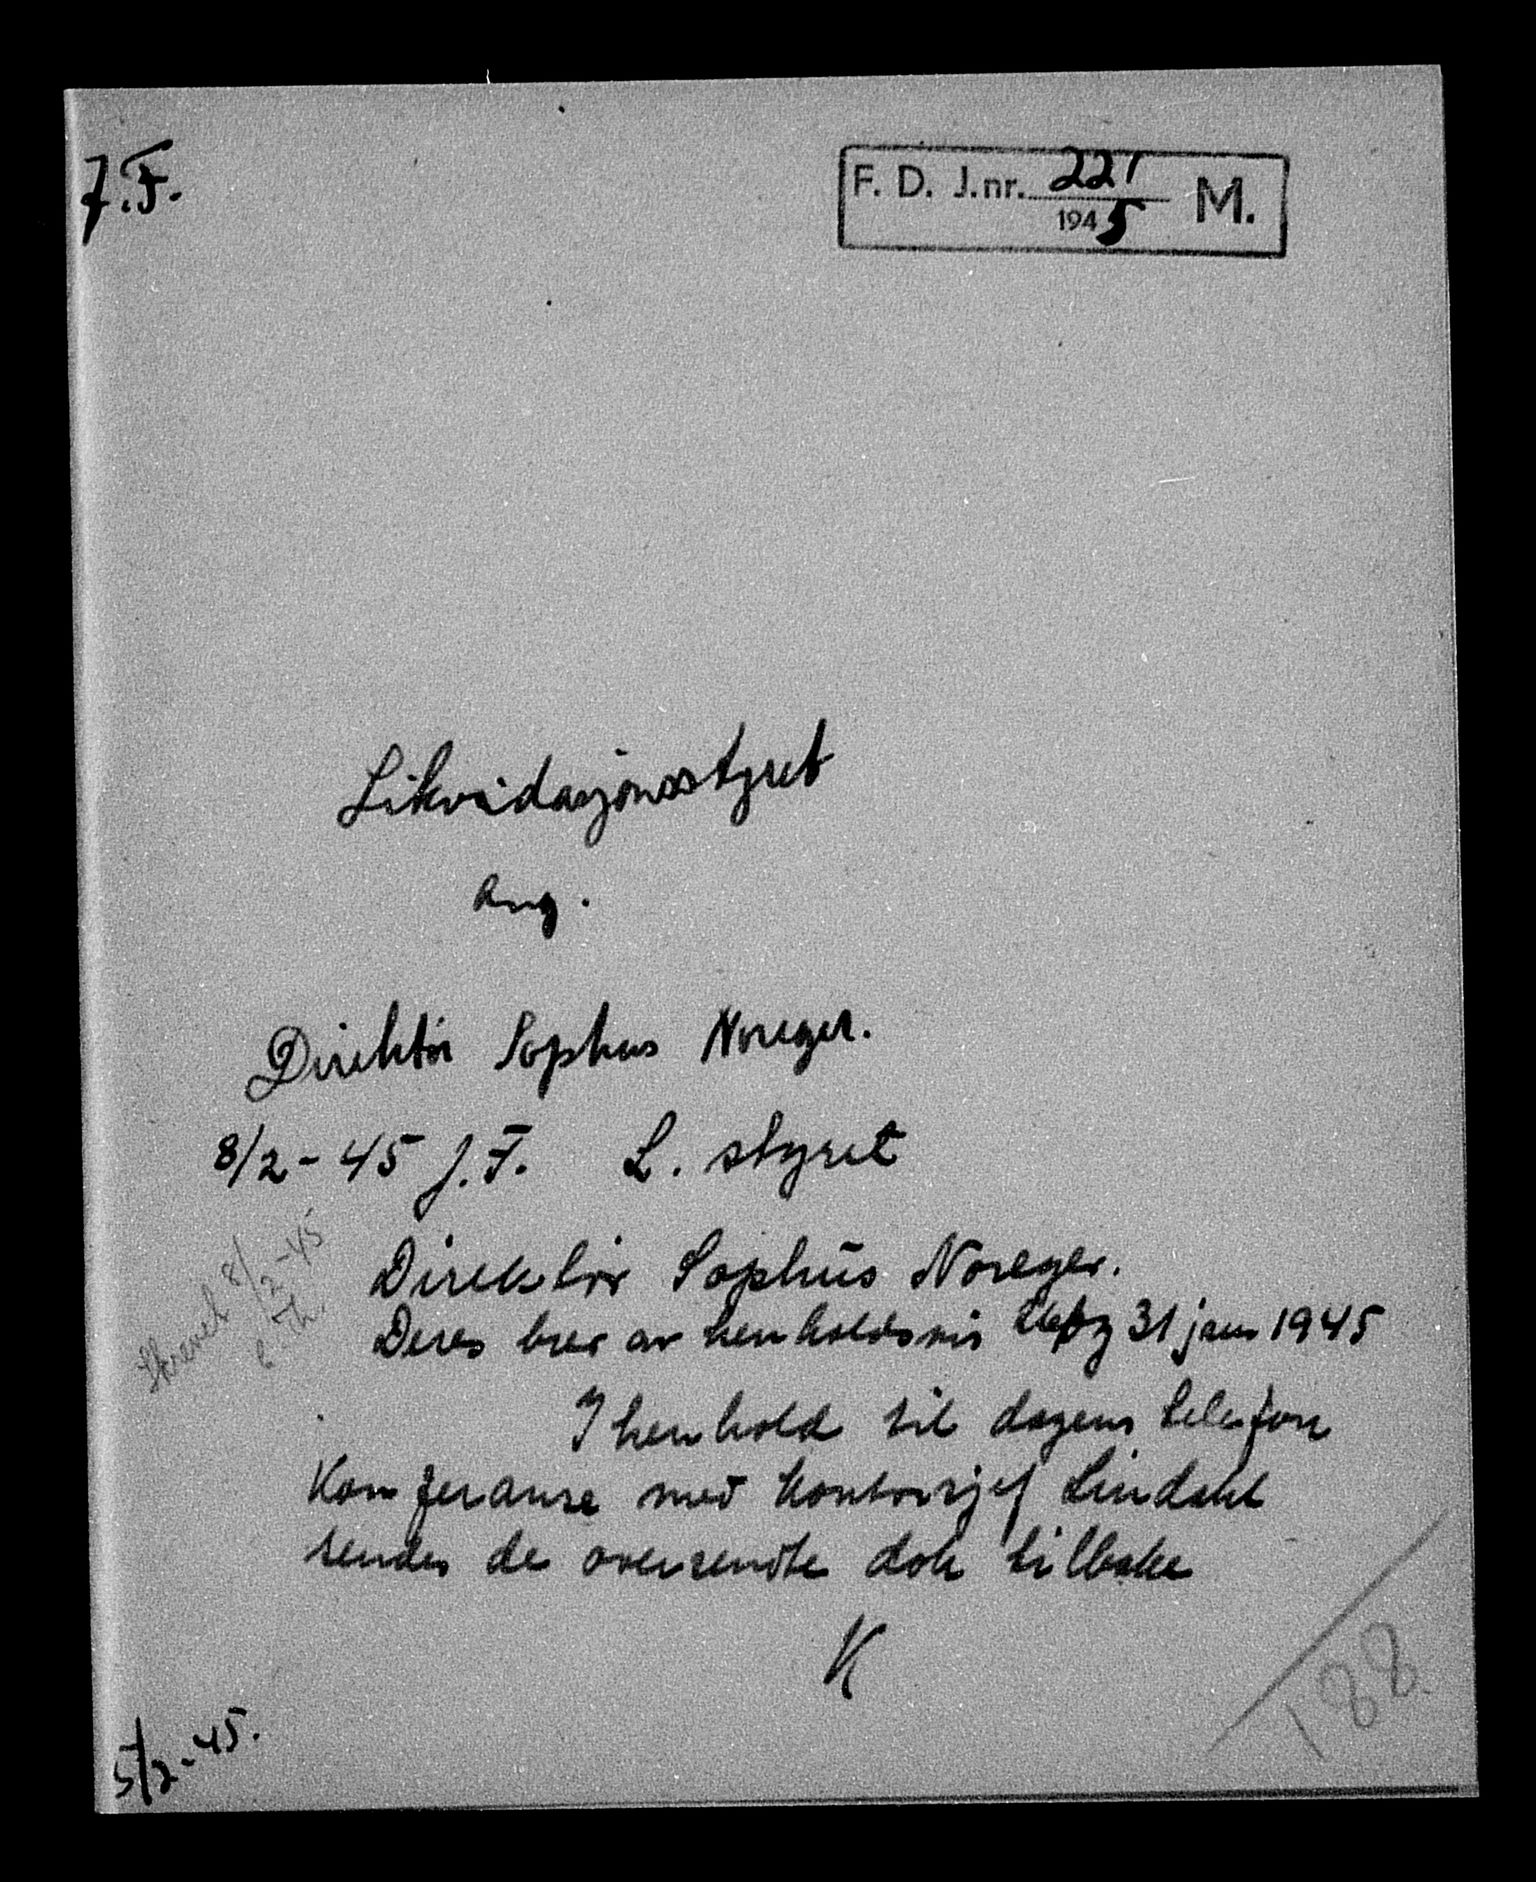 J.F.
F. D. J.nr. 221 M.
1945
Likvidasjonsstyret
Ang.
Direktör Sophus Noreger.
8/2-45 J.F. L. styret
Direktör Sophus Noreger.
Skrevet 8/2-45
Deres brev av henholdsvis og 31 jan 1945
I henhold til dagens telefon
Konferanse med Kontorsjef Lindahl
sendes de oversendte dok tilbake
K
188
5/2-45.